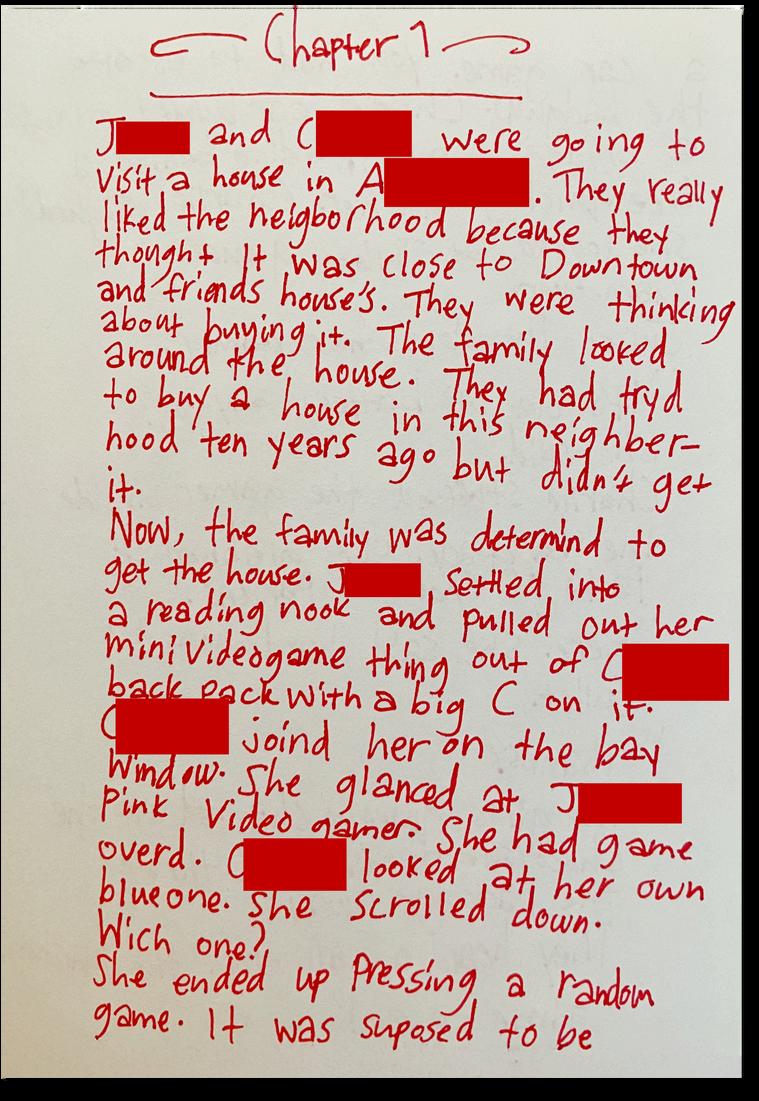 Chapter 1
J and C were going to
visit a house in A. They really
liked the neigborhood because they
thought It was close to Downtown
and friends house's. They were thinking
about buying it. The family looked
around the house. They had tryd
to buy a house in this neighber-
hood ten years ago but didn't get
it.
Now, the family was determind to
get the house. J settled into
a reading nook and pulled out her
mini videogame thing out of C
back pack with a big C on it.
C joind her on the bay
Window. She glanced at J
pink Video gamer. She had game
overd. C looked at her own
blue one. She Scrolled down.
Wich one?
She ended up Pressing a random
game. It was suposed to be